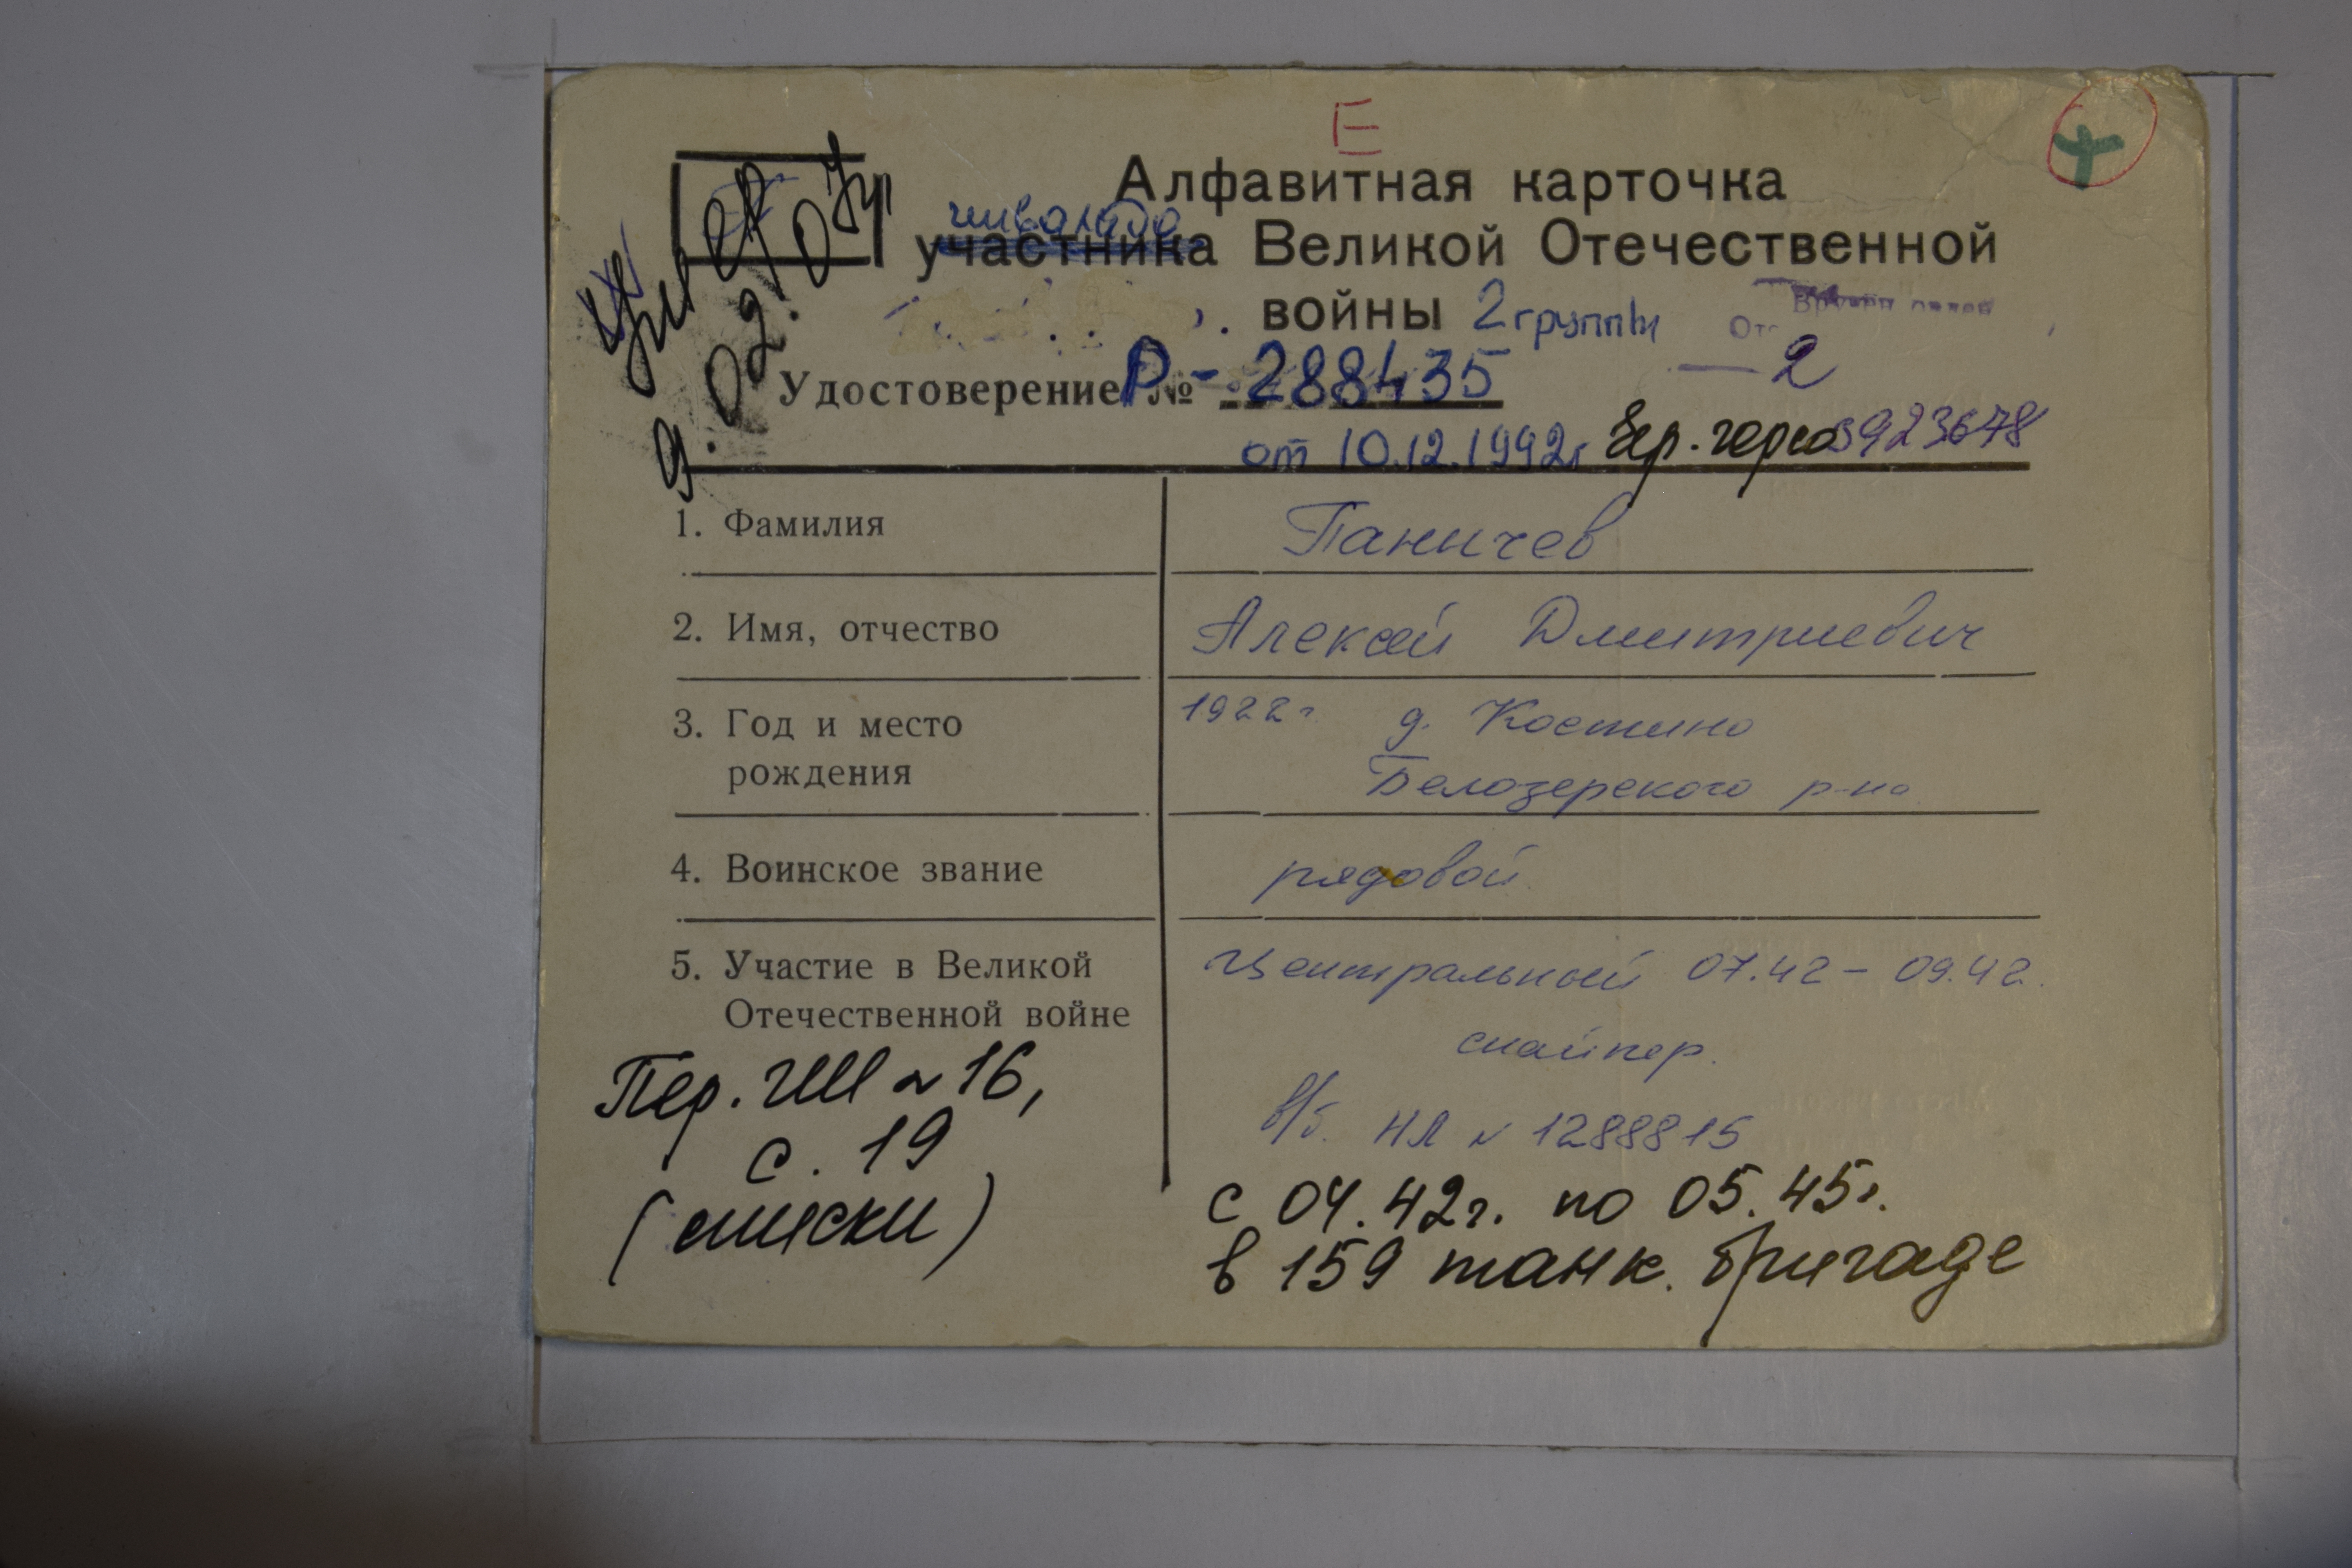 E
Алфавитная карточка
инвалида
участника Великой Отечественной
войны 2 группы
Удостоверение Р-№ 288435
2
от 10.12.1992г 3923678
умер
9.02.07г
1. Фамилия Паничев
2. Имя, отчество Алексей Дмитриевич
3. Год и место 1922г д. Костино
рождения Белозерского р-на
4. Воинское звание рядовой
5. Участие в Великой Центральный 07.42 - 09.42
Отечественной войне
снайпер.
Пер. № 16,
с. 19
(списки)
в/б. НЛ № 1288815
с 04.42г. по 05.45г.
в 159 танк. бригаде